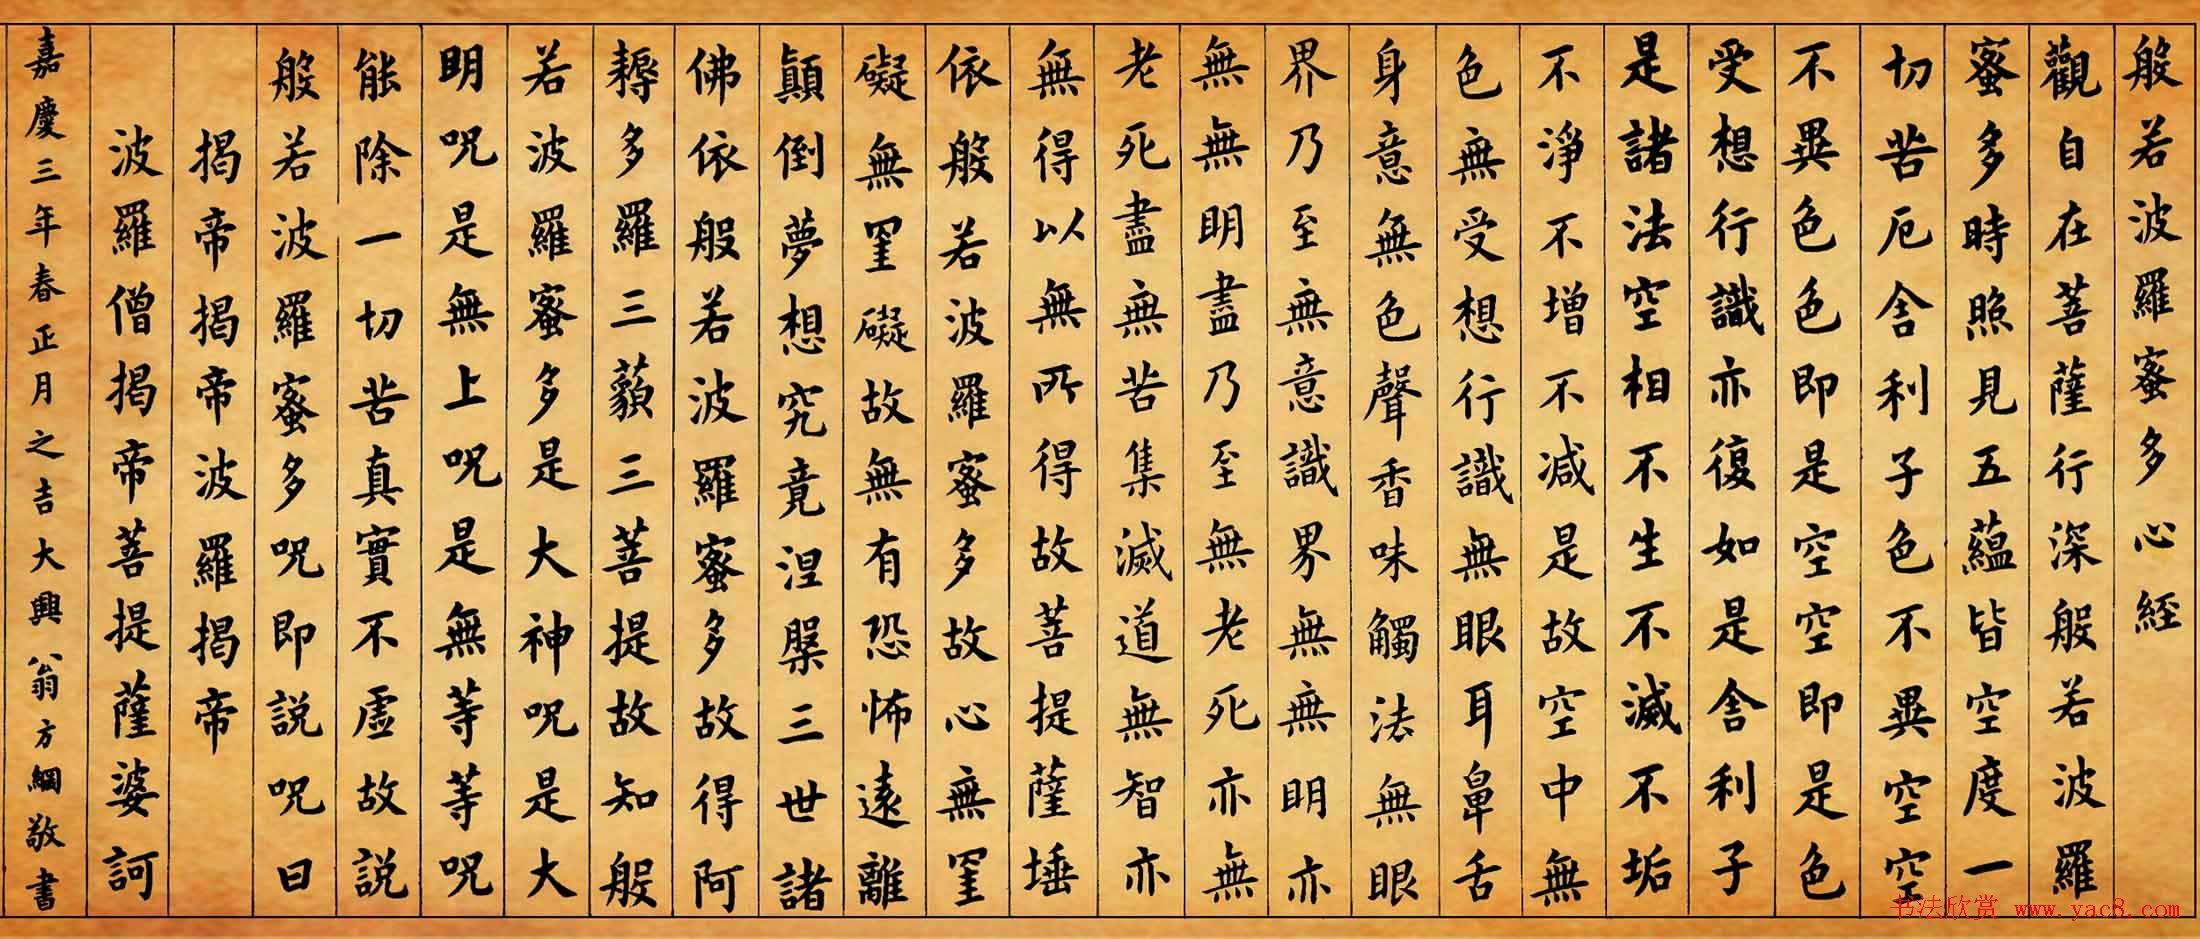 般若波羅蜜多心經
觀自在菩薩行深般若波羅
蜜多時照見五蘊皆空度一
切苦厄舍利子色不異空空
不異色色即是空空即是色
受想行識亦復如是舍利子
是諸法空相不生不滅不垢
不淨不增不减是故空中無
色無受想行識無眼耳鼻舌
身意無色聲香味觸法無眼
界乃至無意識界無無明亦
無無明盡乃至無老死亦無
老死盡無苦集滅道無智亦
無得以無所得故菩提薩埵
依般若波羅蜜多故心無罣
礙無罣礙故無有恐怖遠離
顛倒夢想究竟涅槃三世諸
佛依般若波羅蜜多故得阿
耨多羅三藐三菩提故知般
若波羅蜜多是大神呪是大
明呪是無上呪是無等等呪
能除一切苦真實不虛故說
般若波羅蜜多呪即說呪曰
揭帝揭帝波羅揭帝
波羅僧揭帝菩提薩婆訶
嘉慶三年春正月之吉大興翁方綱敬書
书法欣赏 www.yac8.com